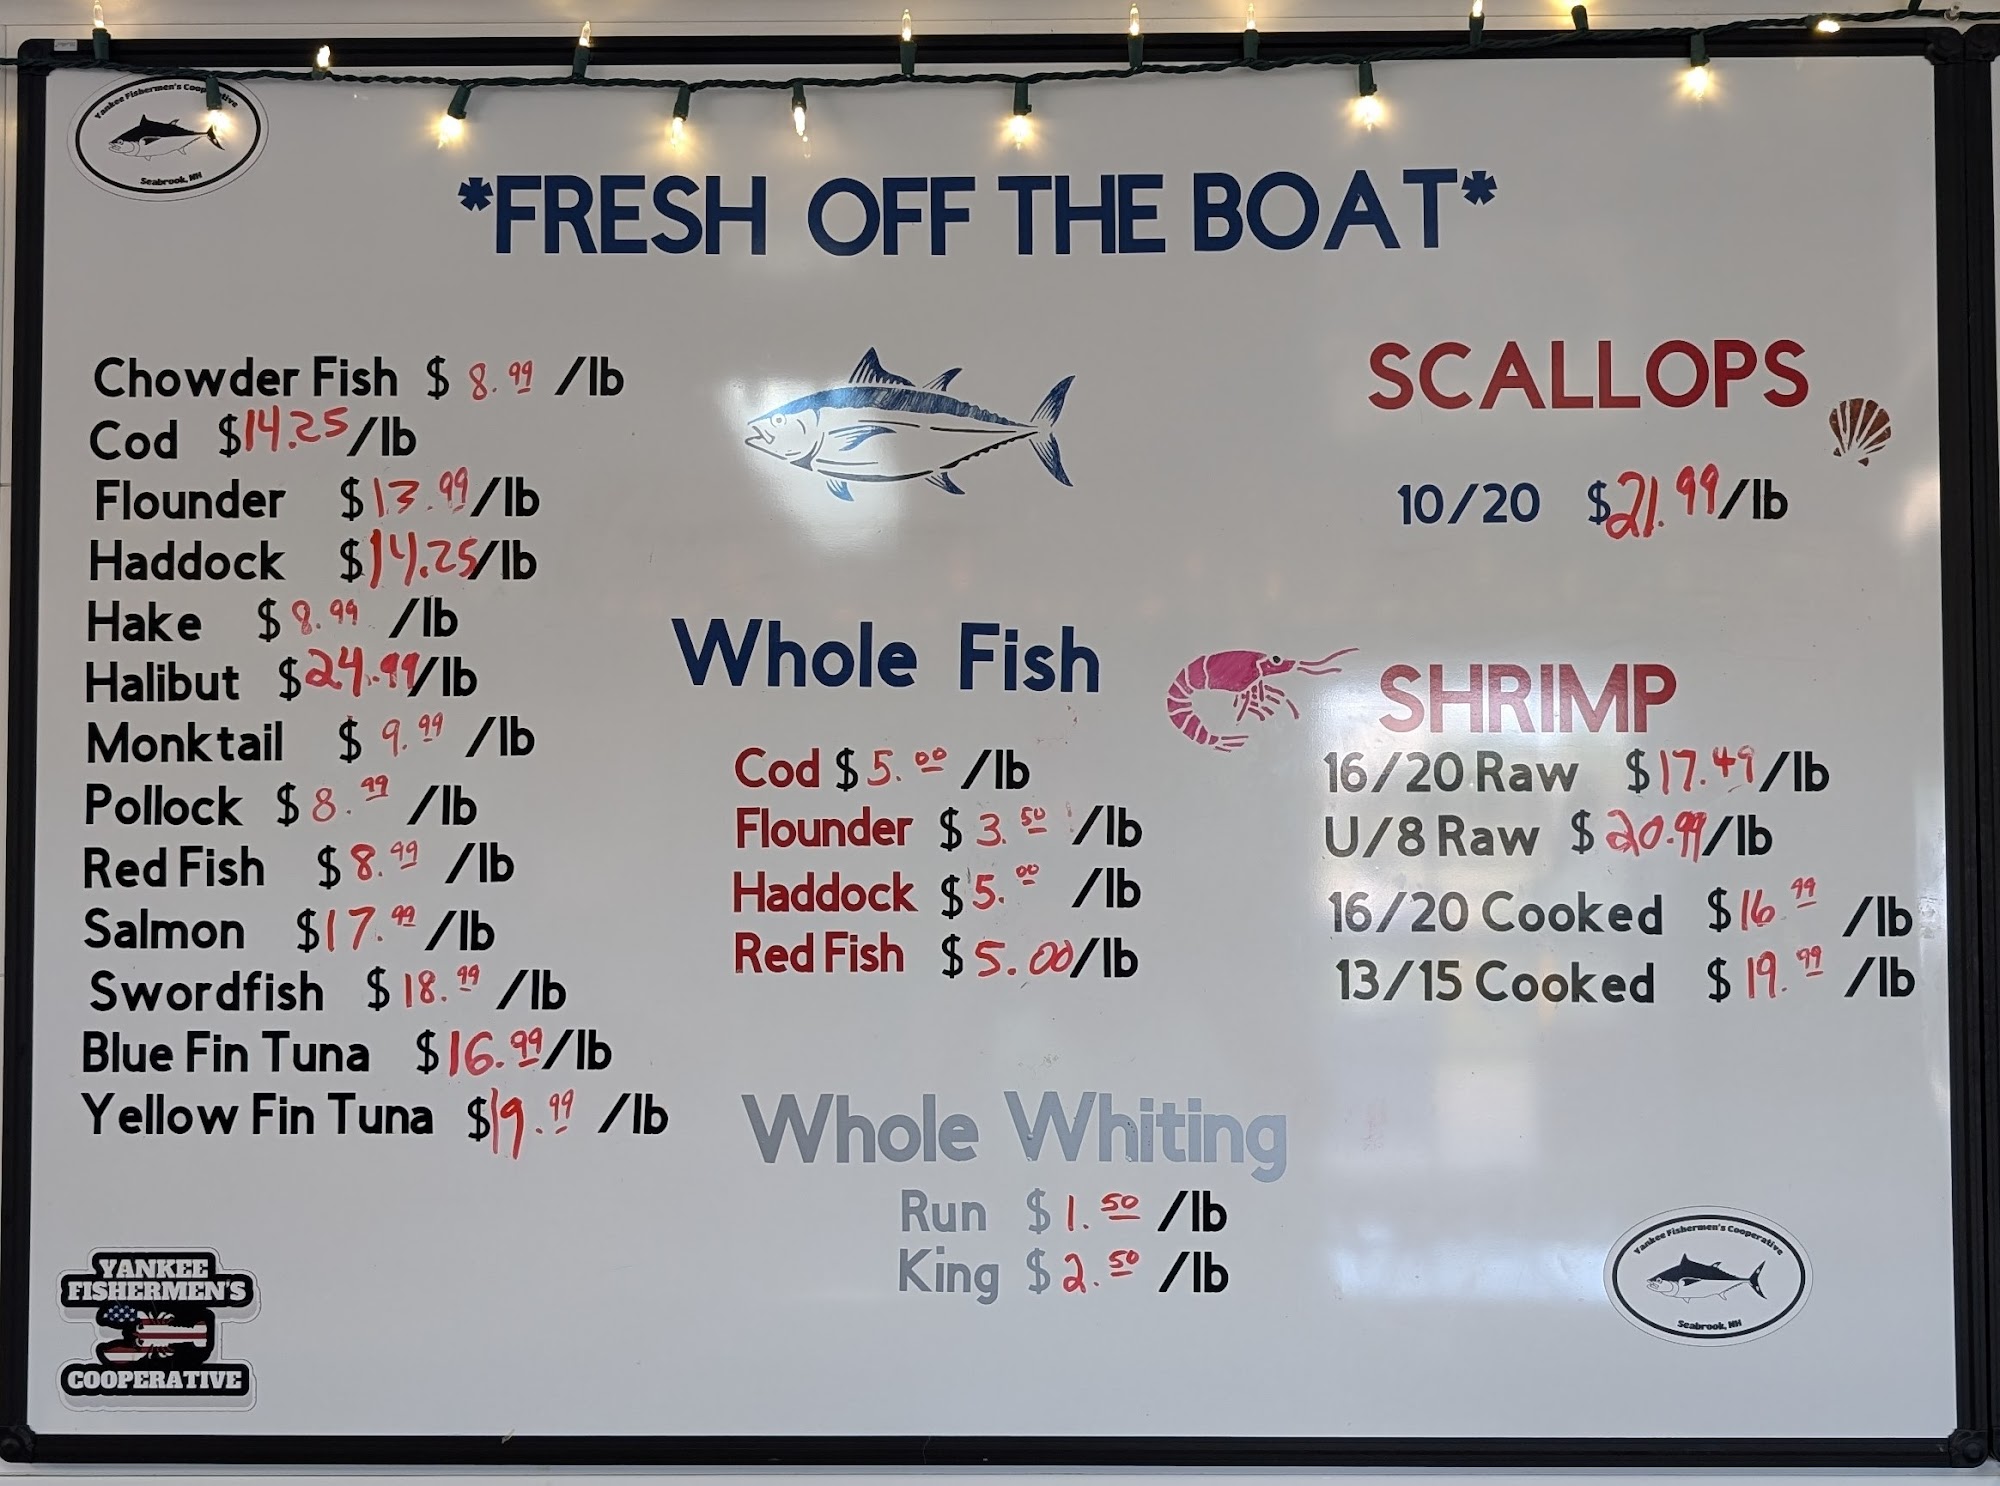 Yankee Fishermen's Cooperative
Seabrook, NH
*FRESH OFF THE BOAT*
Chowder Fish $ 8.99 /lb
Cod $14.25/lb
Flounder $13.99/lb
Haddock $14.25/lb
Hake $8.99 /lb
Halibut $24.99/lb
Monktail $ 9.99 /lb
Pollock $8.99 /lb
Red Fish $8.99 /lb
Salmon $17.99 /lb
Swordfish $18.99 /lb
Blue Fin Tuna $16.99/lb
Yellow Fin Tuna $19.99 /lb
Whole Fish
Cod $5.00 /lb
Flounder $3.50 /lb
Haddock $5.00 /lb
Red Fish $5.00/lb
Whole Whiting
Run $1.50 /lb
King $2.50 /lb
SCALLOPS
10/20 $21.99/lb
SHRIMP
16/20 Raw $17.49/lb
U/8 Raw $20.99/lb
16/20 Cooked $16.99 /lb
13/15 Cooked $19.99 /lb
YANKEE
FISHERMEN'S
COOPERATIVE
Yankee Fishermen's Cooperative
Seabrook, NH